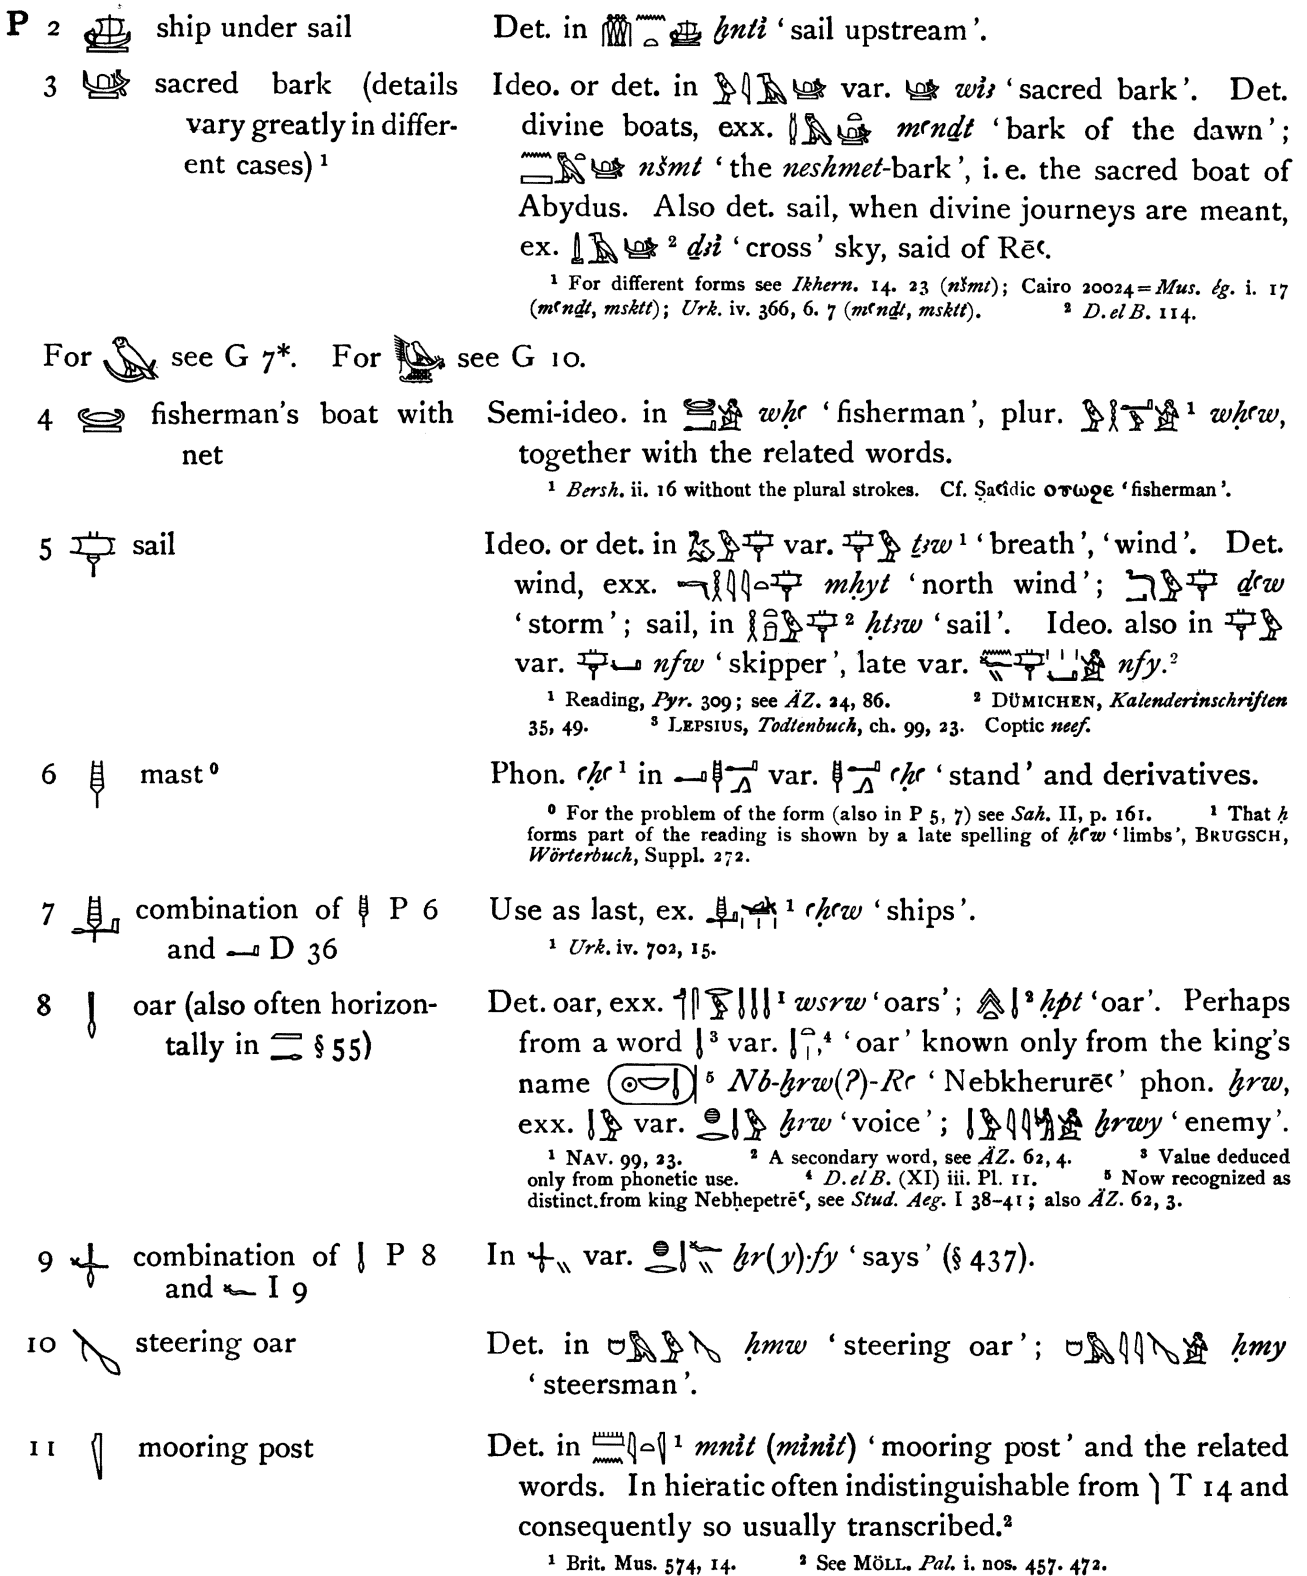 P 2 𓊝 ship under sail
Det. in 𓏃𓈖𓏏𓊝 ḫntἰ ‘sail upstream’.
3 𓊞 sacred bark (details
vary greatly in differ-
ent cases) ¹
Ideo. or det. in 𓅱𓇋𓅿𓊞 var. 𓊞 wἰꜣ ‘sacred bark’. Det.
divine boats, exx. mꜥnḏt ‘bark of the dawn’;
𓈖𓈙𓅓𓏏𓊞 nšmt ‘the neshmet-bark’, i. e. the sacred boat of
Abydus. Also det. sail, when divine journeys are meant,
ex. 𓊞 ² ḏꜣἰ ‘cross’ sky, said of Rēꜥ.
¹ For different forms see Ikhern. 14. 23 (nšmt); Cairo 20024 = Mus. ég. i. 17
(mꜥnḏt, msktt); Urk. iv. 366, 6. 7 (mꜥnḏt, msktt). ² D. el B. 114.
For 𓅊 see G 7*. For 𓅐 see G 10.
4 𓊠 fisherman’s boat with
net
Semi-ideo. in 𓊠𓂝𓀀 wḥꜥ ‘fisherman’, plur. ¹ wḥꜥw,
together with the related words.
¹ Bersh. ii. 16 without the plural strokes. Cf. Ṣaꜥîdic ⲟⲩⲱϩⲉ ‘fisherman’.
5 𓊡 sail
Ideo. or det. in 𓅷𓅱𓊡 var. 𓊡𓅱 ṯꜣw ¹ ‘breath’, ‘wind’. Det.
wind, exx. 𓎔𓎛𓇋𓇋𓏏𓊡 mḥyt ‘north wind’; 𓆓𓂝𓅱𓊡 ḏꜥw
‘storm’; sail, in ² ḥtꜣw ‘sail’. Ideo. also in 𓊡𓅱
var. 𓊡𓂝 nfw ‘skipper’, late var. nfy.²
¹ Reading, Pyr. 309; see ÄZ. 24, 86. ² DÜMICHEN, Kalenderinschriften
35, 49. ³ LEPSIUS, Todtenbuch, ch. 99, 23. Coptic neef.
6 𓊢 mast ⁰
Phon. ꜥḥꜥ ¹ in 𓂝𓊢𓂝𓂻 var. 𓊢𓂝𓂻 ꜥḥꜥ ‘stand’ and derivatives.
⁰ For the problem of the form (also in P 5, 7) see Sah. II, p. 161. ¹ That ḥ
forms part of the reading is shown by a late spelling of ḥꜥw ‘limbs’, BRUGSCH,
Wörterbuch, Suppl. 272.
7 𓊣 combination of 𓊢 P 6
and 𓂝 D 36
Use as last, ex. 𓊣𓊛𓏥 ¹ ꜥḥꜥw ‘ships’.
¹ Urk. iv. 702, 15.
8 𓊤 oar (also often horizon-
tally in § 55)
Det. oar, exx. 𓄊𓋴𓅨𓊤𓊤𓊤 ¹ wsrw ‘oars’; 𓊤 ² ḥpt ‘oar’. Perhaps
from a word 𓊤 ³ var. 𓊤𓏏𓏤,⁴ ‘oar’ known only from the king’s
name (𓇳𓎟𓊤) ⁵ Nb-ḫrw(?)-Rꜥ ‘Nebkherurēꜥ’ phon. ḫrw,
exx. 𓊤𓅱 var. 𓐍𓂋𓊤𓅱 ḫrw ‘voice’; 𓊤𓅱𓇋𓇋𓀐𓀀 ḫrwy ‘enemy’.
¹ NAV. 99, 23. ² A secondary word, see ÄZ. 62, 4. ³ Value deduced
only from phonetic use. ⁴ D. el B. (XI) iii. Pl. 11. ⁵ Now recognized as
distinct from king Nebḥepetrēꜥ, see Stud. Aeg. I 38–41; also ÄZ. 62, 3.
9 𓊥 combination of 𓊤 P 8
and 𓆑 I 9
In 𓊥𓏭 var. 𓐍𓂋𓊤𓆑𓏭 ḫr(y)·fy ‘says’ (§ 437).
10 𓊦 steering oar
Det. in 𓎛𓅓𓅱𓊦 ḥmw ‘steering oar’; 𓇋𓇋𓊦𓀀 ḥmy
‘steersman’.
11 𓊧 mooring post
Det. in 𓏠𓈖𓇋𓏏𓊧 ¹ mnἰt (mἰnἰt) ‘mooring post’ and the related
words. In hieratic often indistinguishable from 𓌙 T 14 and
consequently so usually transcribed.²
¹ Brit. Mus. 574, 14. ² See MÖLL. Pal. i. nos. 457. 472.